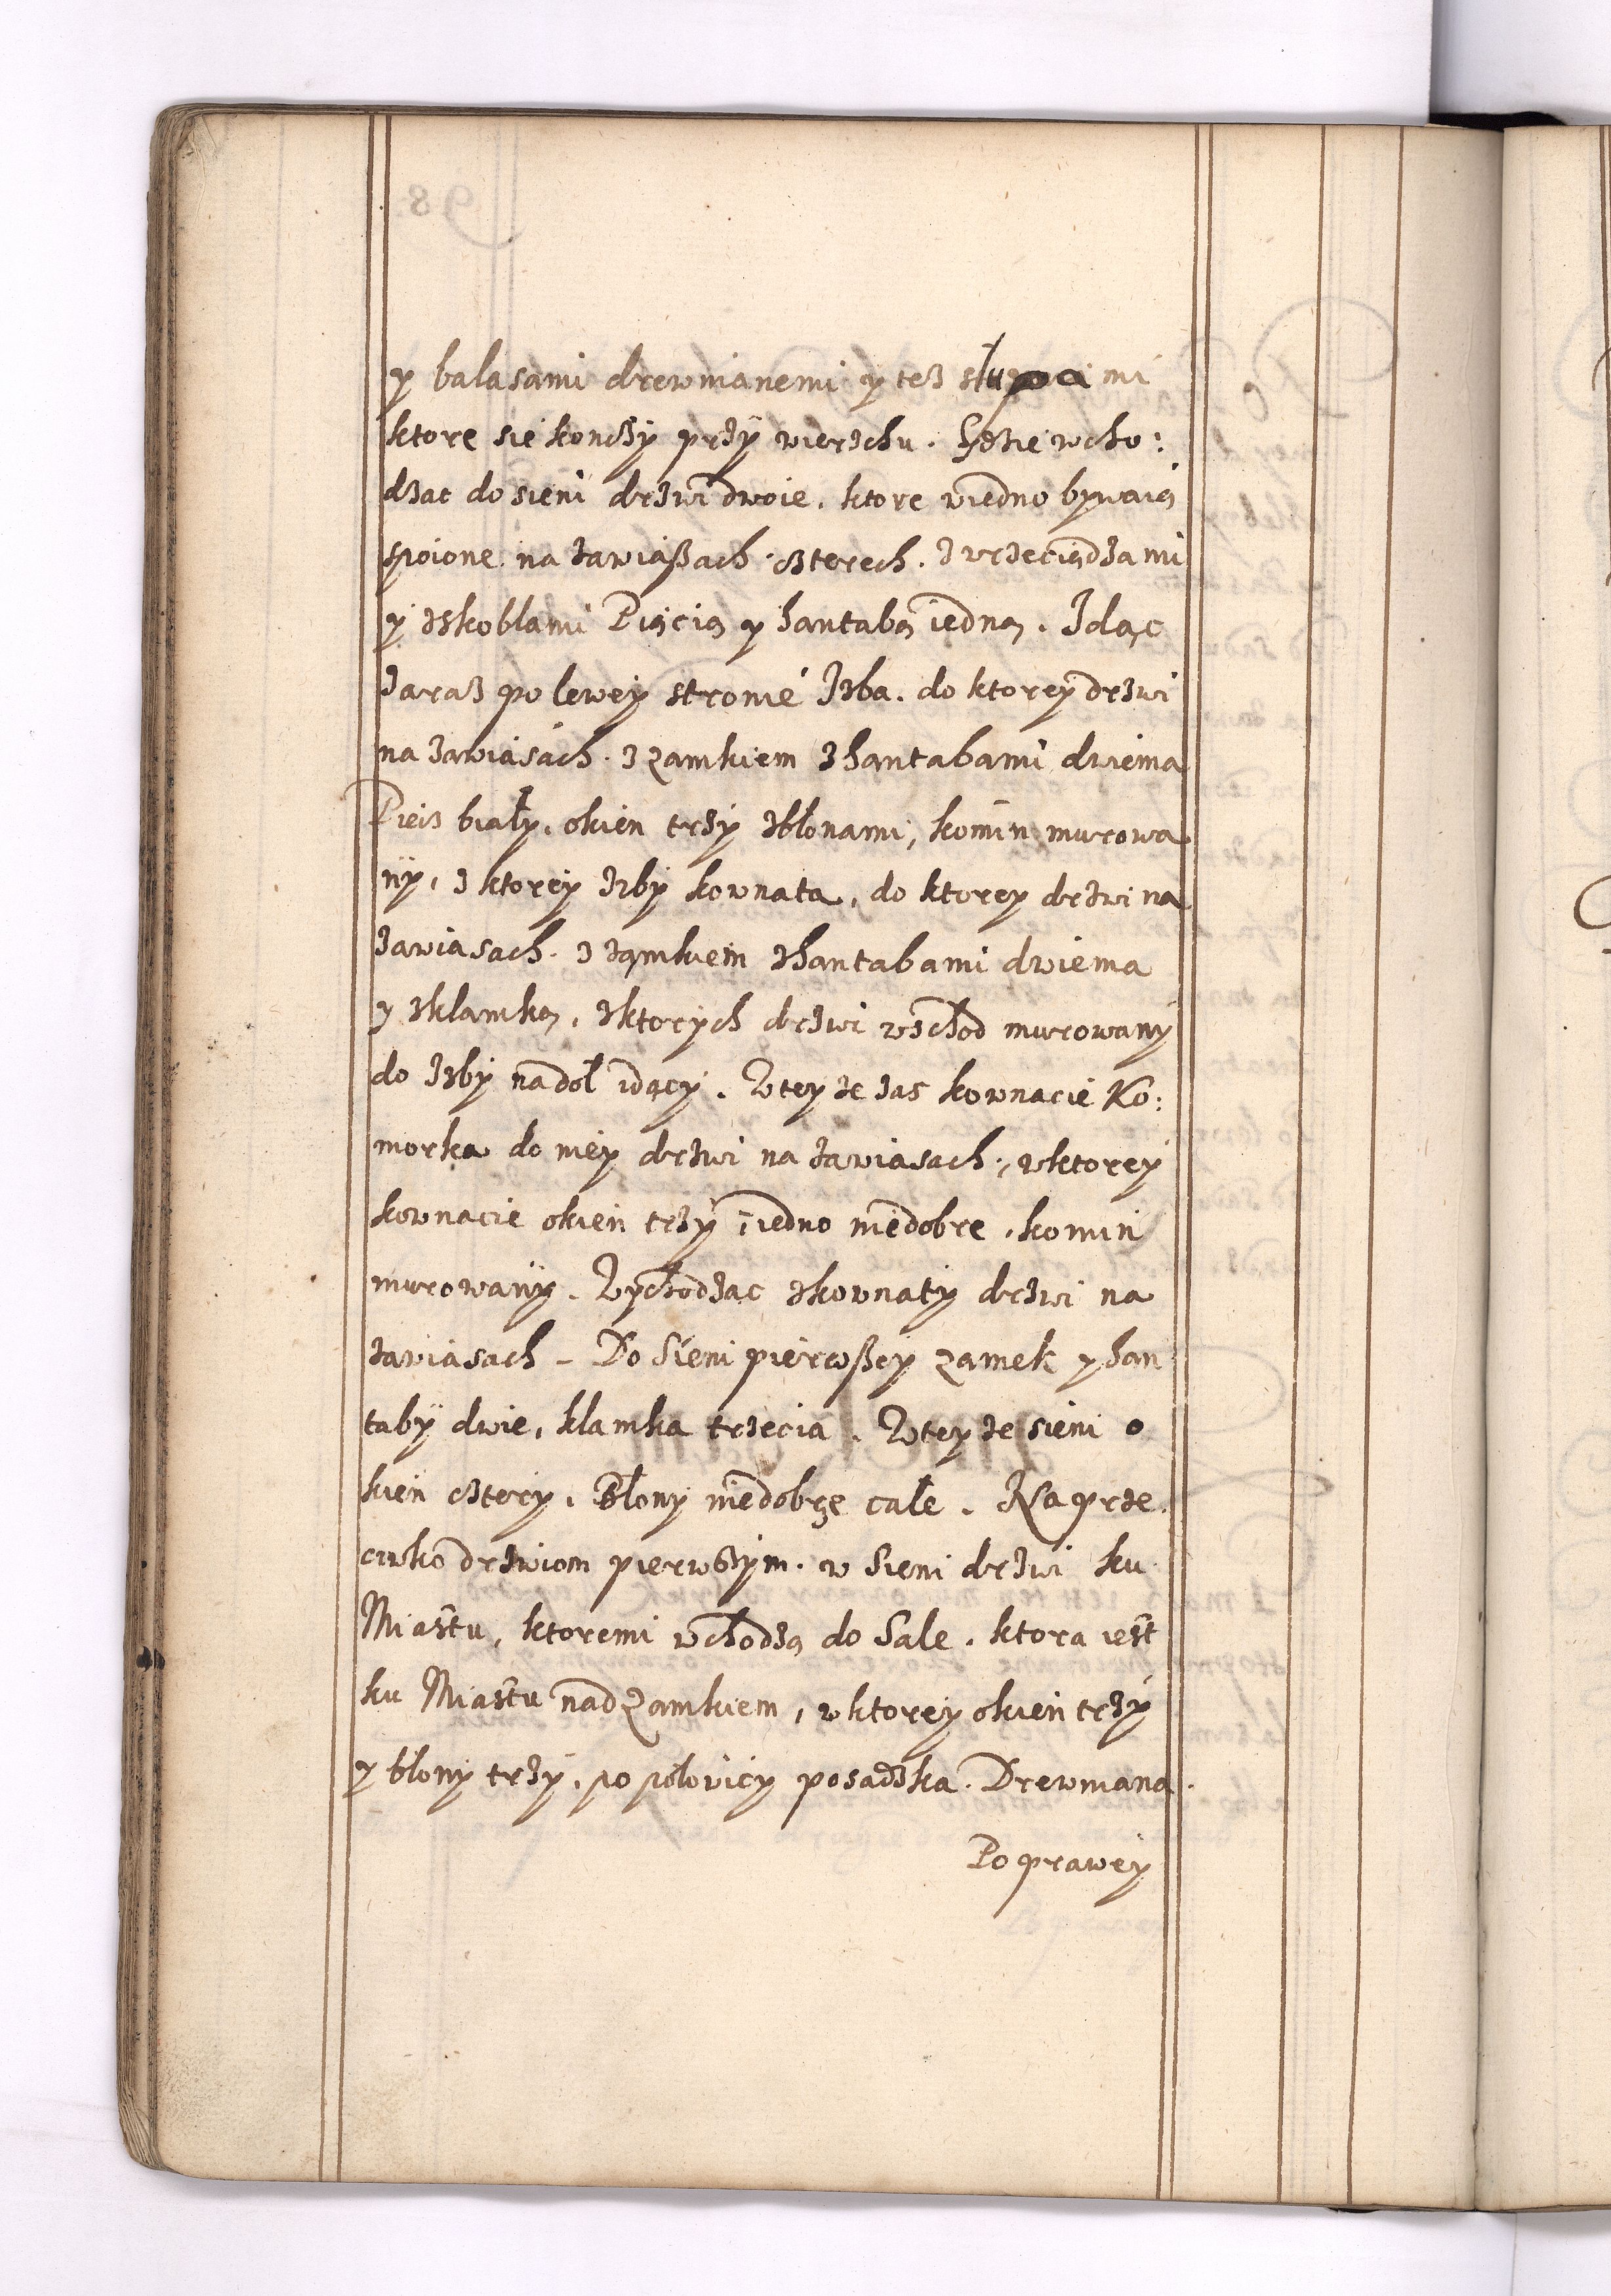 y balasami drewnianemi y tesz słupami
ktore sie konczy przy wierzchu. Gdzie wcho:
dzac do sieni drzwi dwoie, ktore wiedno bywaią
spoione na zawiaszach czterech. z wrzeciądzami
y zskoblami Piącią y hantabą iedną. Idąc
zaraz po lewey stronie Izba. do ktorey drzwi
na zawiasach. z zamkiem z hantabami dwiema
Piec biały, okien trzy zbłonami, komin murowa
ny, z ktorey izby kownata, do ktorey drzwi na
zawiasach. z ząmkiem zhantabami dwiema
y zklamką, zktorych drzwi wschod murowany
do Izby nadoł idący. Wtey ze zas kownacie Ko:
morka do niey drzwi na zawiasach, wktorey
kownacie okien trzy iedno niedobre, komin
murowany. Wychodzac zkownaty drzwi na
zawiasach – Do Sieni pierwszey zamek y han
taby dwie, klamka trzecia. Wtey ze sieni o
kien cztery, Błony niedobrze całe. Naprze
ciwko drzwiom pierwszym. w Sieni drzwi ku
Miastu, ktoremi wchodzą do Sale. ktora iest
ku Miastu nad Zamkiem, wktorey okien trzy
y błony trzy, po połowicy posadzka. Drewniana.
Po prawey
98